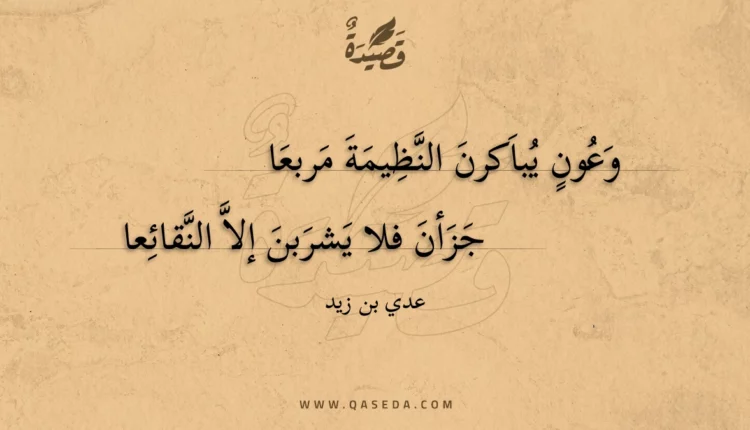 قَصِيدَةٌ
وَعُونٍ يُباَكرنَ النَّظِيمَةَ مَربعَا
جَزَأنَ فلا يَشرَبنَ إلاَّ النَّقائِعا
عدي بن زيد
WWW.QASEDA.COM